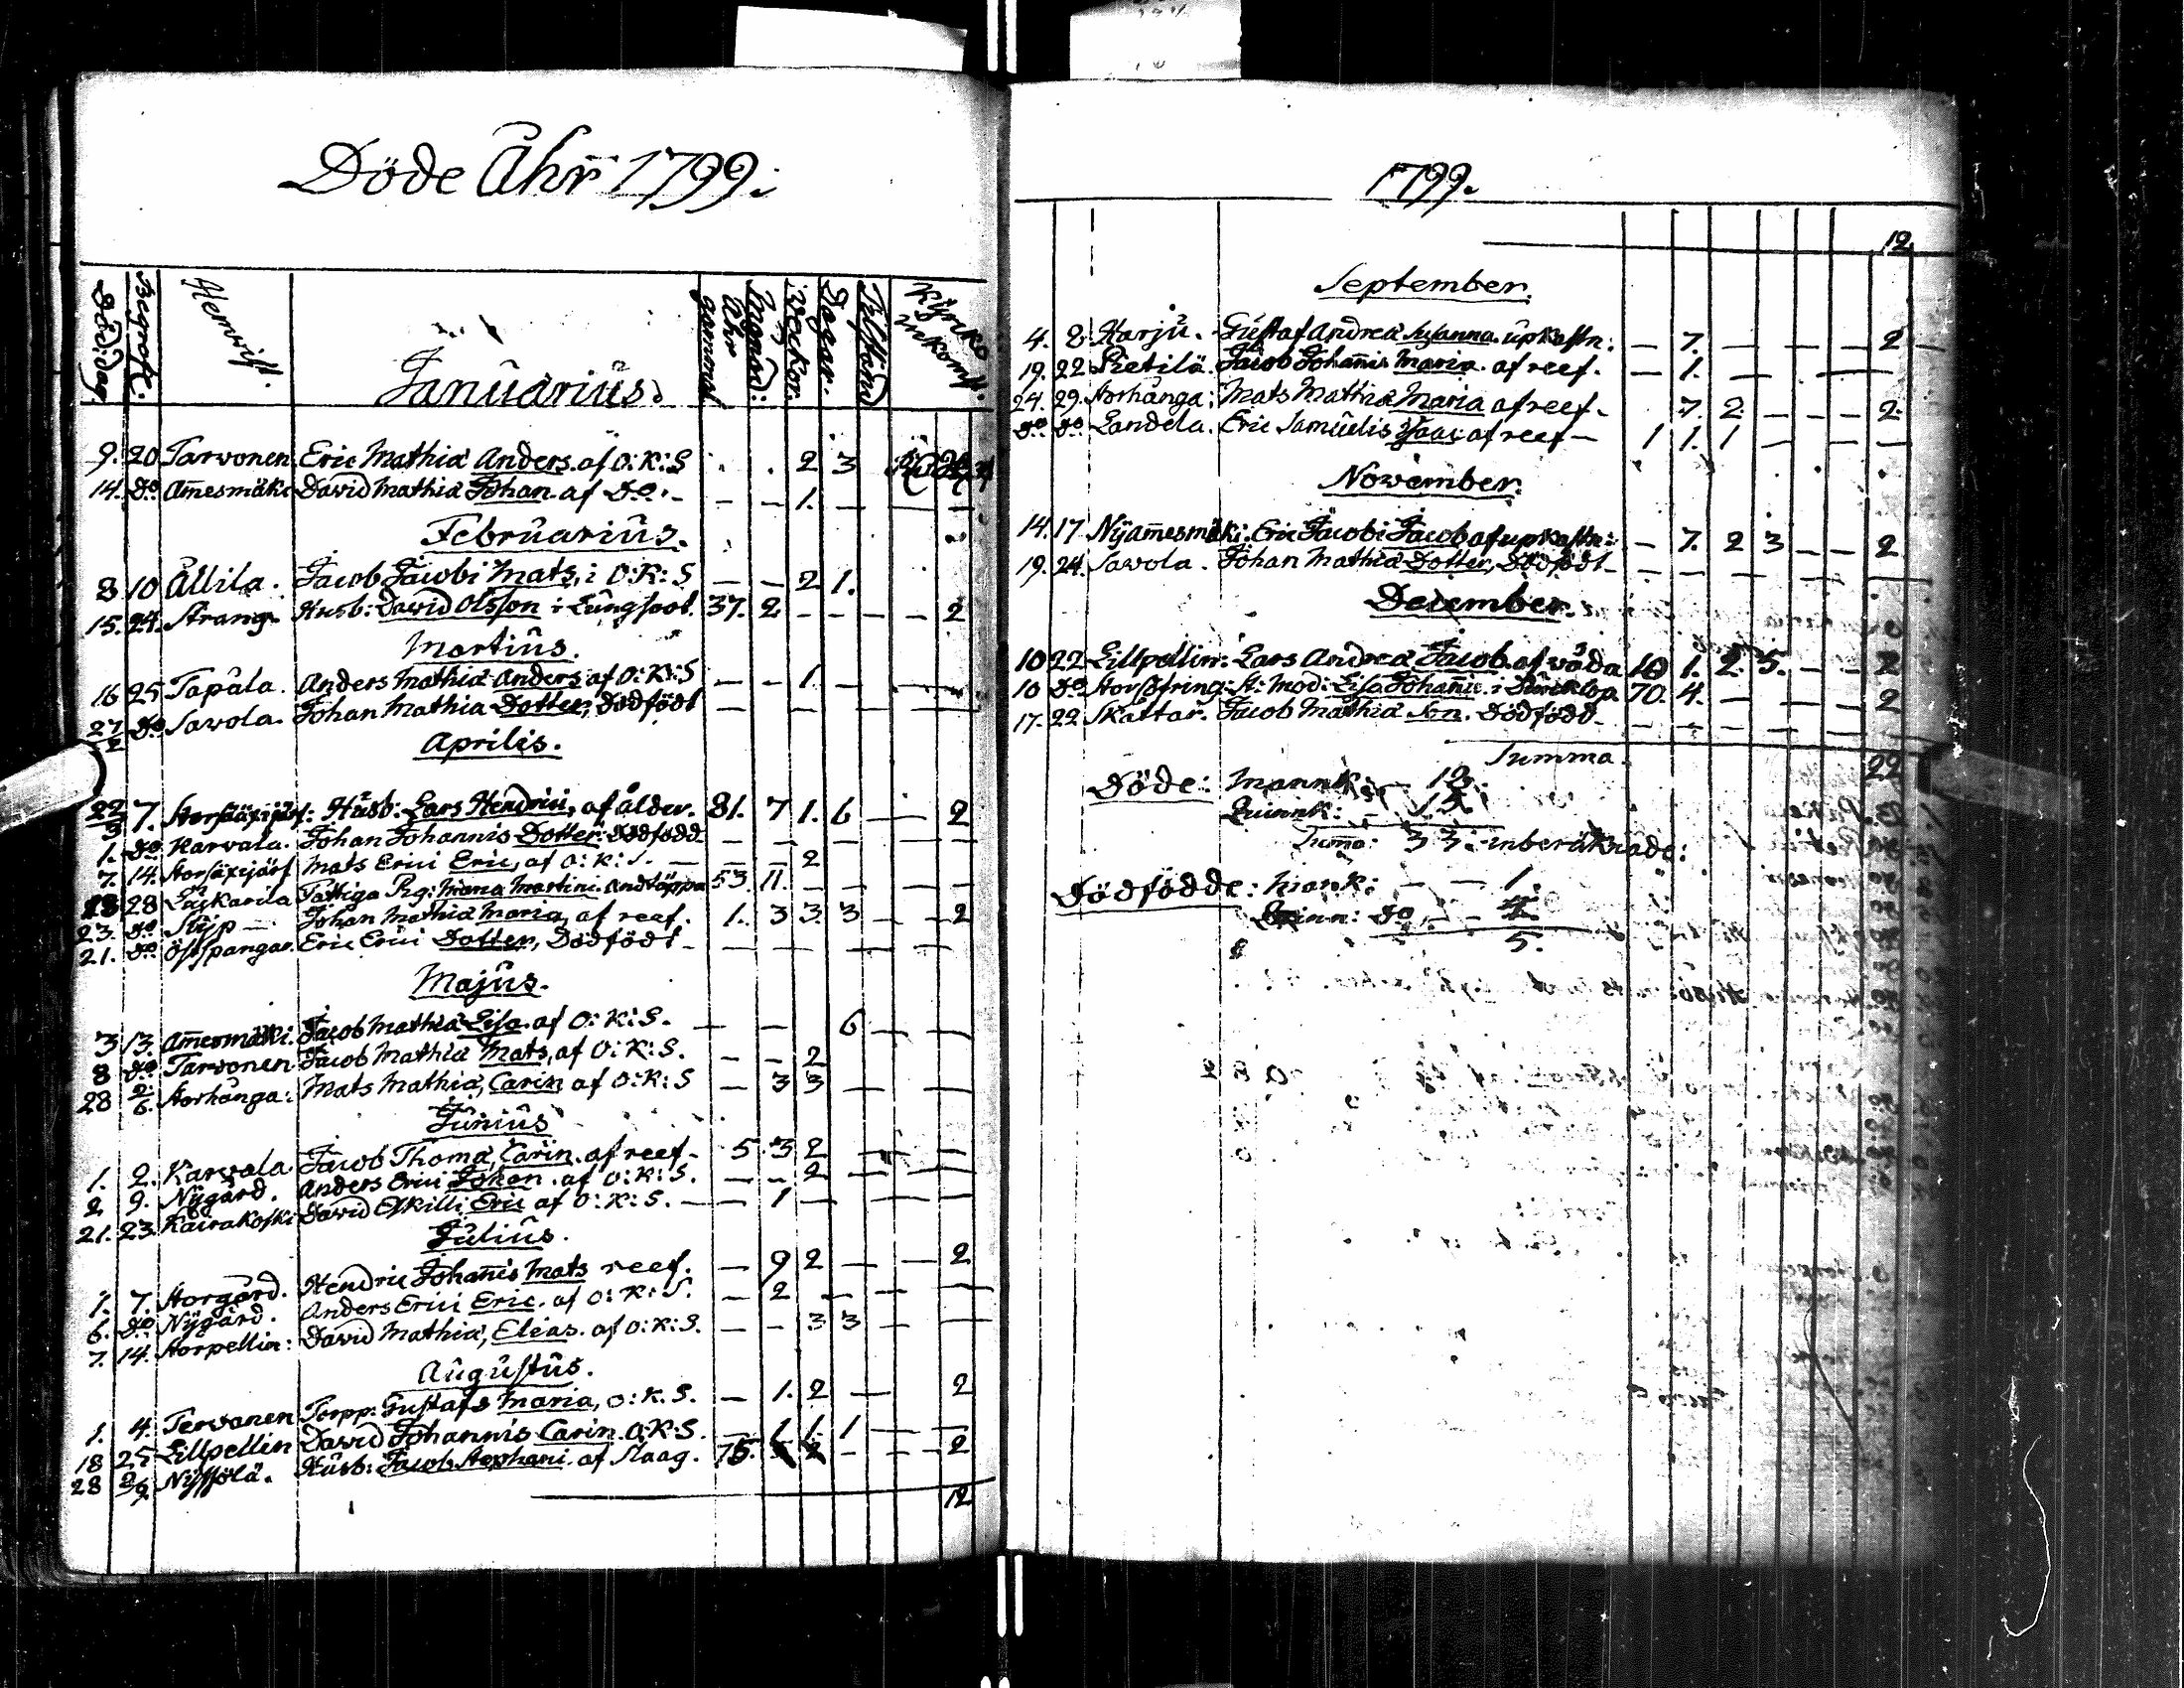 Döde Åhr 1799.
Död: dag. Begrafne. Hemvist. Januarius. gammal Åhr Månad: Weckor. Dagar. Kyrko Inkomst.
9. 20 Tarvonen Eric Mathiæ Anders. af O: K: S . . 2 3
14. Do Am̄esmäki David Mathiæ Johan. af Do. - — — 1. — —
Februarius.
8 10 Ällila. Jacob Jacobi Mats, i O: K: S — — 2 1.
15. 24. Strang. Husb: David Olsson i Lungsot. 37. 2 - - - - 2
Martius.
16 25 Tapala. Anders Mathiæ Anders af O: K: S — — 1. —
27/2 Do Savola. Johan Mathiæ Dotter, Dödfödt — — — —
Aprilis.
22/3 7. Storsäxijärf: Husb: Lars Hendrici, af ålder. 81. 7 1. 6 — 2
1. Do Karvala. Johan Johannis Dotter: Dödfödd — — — —
7. 14. Storsäxijärf Mats Erici Eric, af O: K: S. — — — 2
28 Kaskarila Fattiga Pig: Maria Martini. Andtäppa 53. 11. — — — —
23. Do Slip — Johan Mathiæ Maria, af reef. 1. 3 3 3 — - 2
21. Do Östspangar. Eric Erici Dotter, Dödfödt — — — —
Majus.
3 13. Am̄esmäki. Jacob Mathiæ Lisa. af O: K: S. — — 6 — —
8 Do Tarvonen Jacob Mathiæ Mats, af O: K: S. — — 2
28 2/6. Storhånga: Mats Mathiæ, Carin af O: K: S — 3 3 — —
Junius
1. 2. Karvala Jacob Thomæ, Carin. af reef - 5. 3 2 — —
2 9. Nygård. Anders Erici Johan. af O: K: S. — - 2 — —
21. 23. Kairakoski David Eskilli Eric af O: K: S. — — 1 — — —
Julius.
1. 7. Storgård. Hendric Johan̄is Mats reef. — 9 2 — — 2
6. Do Nygård. Anders Erici Eric. af O: K: S. — 2 — — — —
7. 14. Storpellin: David Mathiæ, Elias. af O: K: S. — - 3 3 — —
Augustus.
1. 4. Tervanen Torpp: Gustafs Maria, O: K. S. — 1. 2 — 2
18 25 Lillpellin David Johannis Carin. O: K: S. — 1 1. 1 — —
28 2/9 Nyssölä. Husb: Jacob Stephani. af Slaag. 75. - - - 2
12
1799.
12.
September.
4. 8 Harju. Gustaf Andreæ Susanna. upkastn: — 7. — — — 2 —
19. 22 Pietilä. Jacob Johan̄is Maria. af reef. — 1. — — — —
24. 29. Storhånga: Mats Mathiæ Maria af reef - 7. 2. — — — 2.
Do Do Landela. Eric Samuelis Isaac af reef — 1 1. 1 — — — —
November.
14. 17 Nyam̄esmäki: Eric Jacobi Jacob af upkastn: — 7. 2 3 — — 2
19. 24. Savola. Johan Mathiæ Dotter, Dödfödt — — — — — — —
December.
10 22 Lillpellin: Lars Andreæ Jacob. af våda 10 1. 2. 5. — — 2
10 Do St: Mod: Lisa Johan̄is. i 70. 4. — — — — 2
17. 22 Skattar. Jacob Mathiæ Son. Dödfödd — — — — — —
Summa. 22
Döde: Mannk:
Quinnk:
Sum̄a: 33. inberäknade:
Dödfödde: Mank: — — 1.
Quinn: do — - 4.
5.